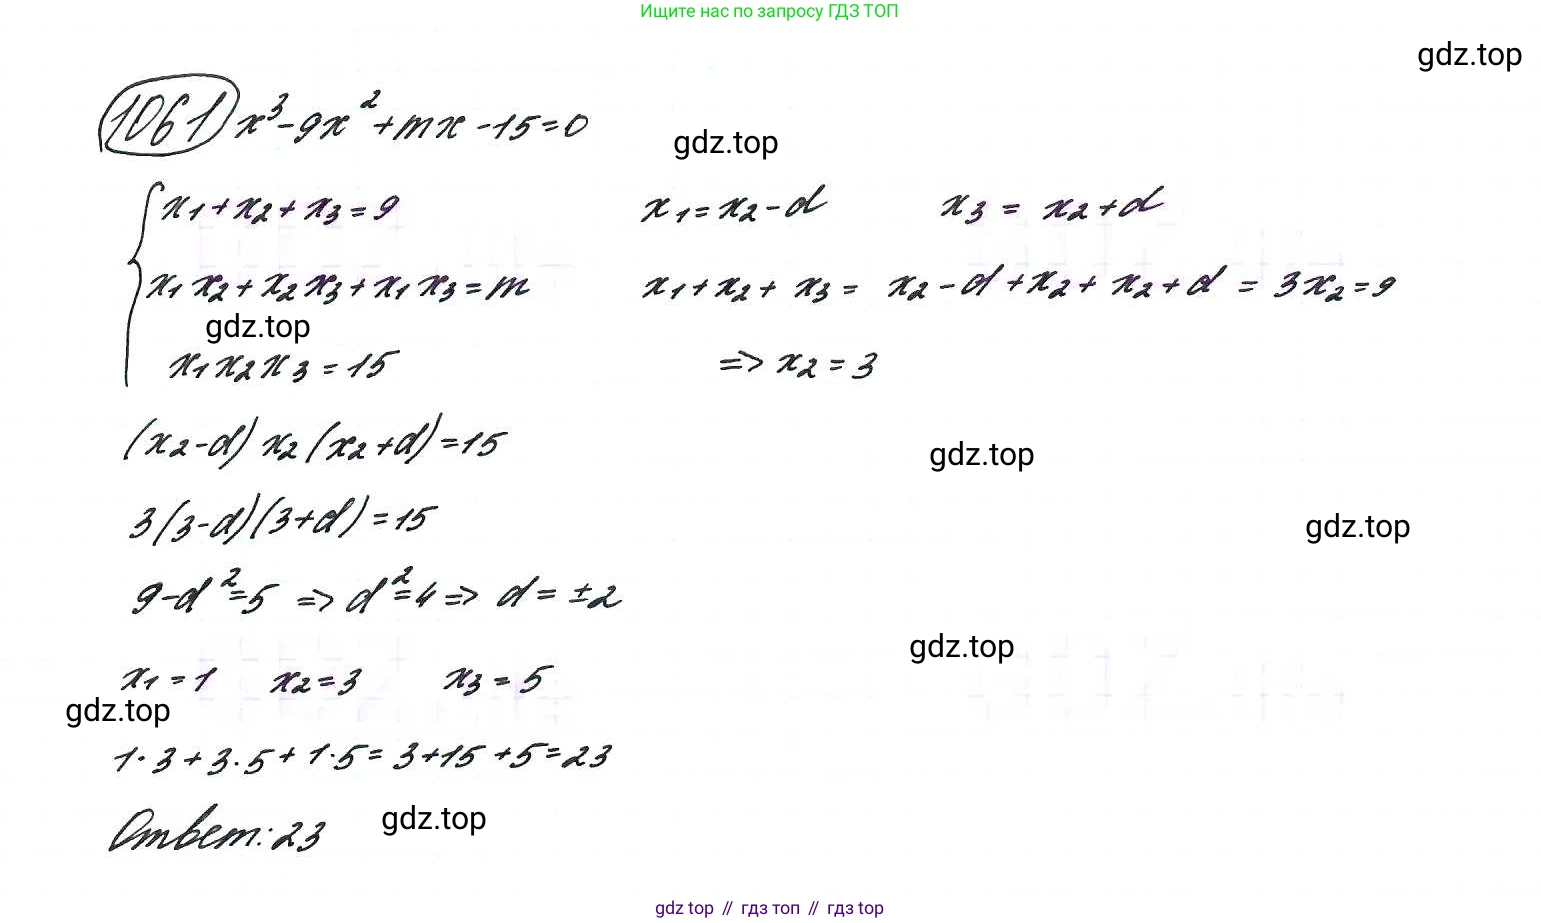 Ищите нас по запросу ГДЗ ТОП
gdz.top
1061 x³-9x²+mx-15=0
gdz.top
x₁+x₂+x₃=9 x₁=x₂-d x₃=x₂+d
x₁x₂+x₂x₃+x₁x₃=m x₁+x₂+x₃= x₂-d+x₂+x₂+d=3x₂=9
gdz.top
x₁x₂x₃=15 => x₂=3
(x₂-d)x₂(x₂+d)=15
gdz.top
3(3-d)(3+d)=15
gdz.top
9-d²=5 => d²=4 => d=±2
gdz.top
x₁=1 x₂=3 x₃=5
gdz.top
1·3+3·5+1·5=3+15+5=23
Ответ: 23
gdz.top
gdz top // гдз топ // гдз top